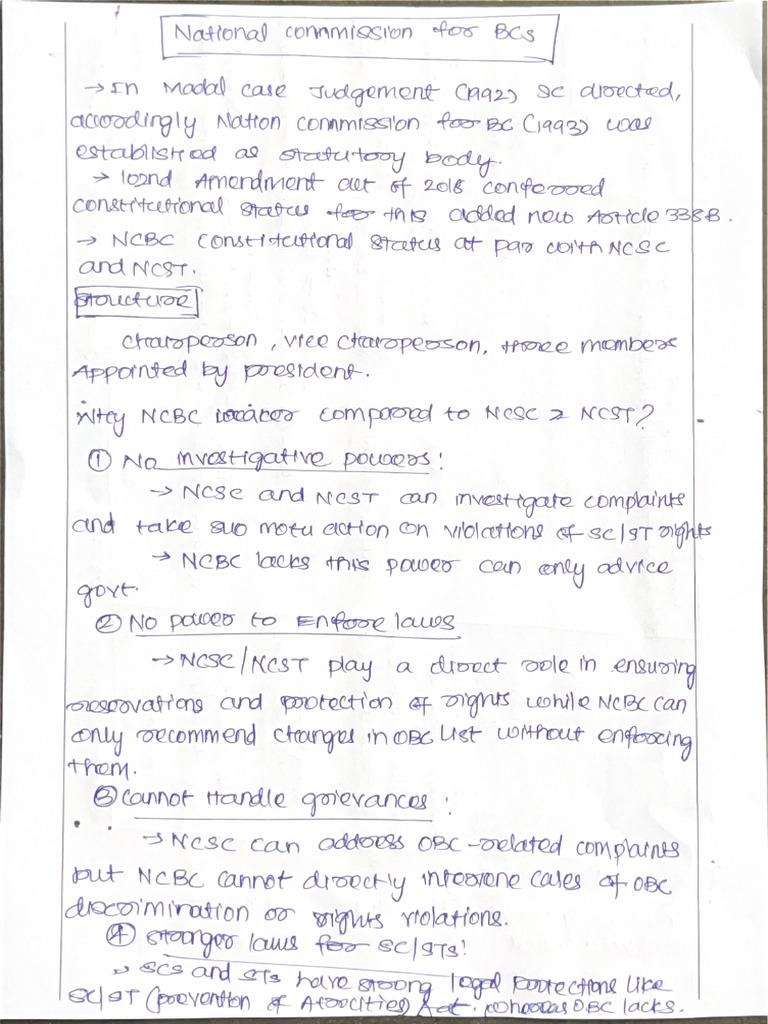 National commission for BCs
→ In Madal case Judgement (1992) SC directed,
accordingly Nation commission for BC (1993) was
established as statutory body.
→ 102nd Amendment act of 2018 conferred
constitutional status for this added new Article 338B.
→ NCBC constitutional status at par with NCSC
and NCST.
Structure
Chairperson, vice chairperson, three members
Appointed by president.
Why NCBC weaker compared to NCSC & NCST?
① No investigative powers:
→ NCSC and NCST can investigate complaints
and take suo motu action on violations of SC/ST rights
→ NCBC lacks this power can only advice
govt.
② No power to Enforce laws
→ NCSC/NCST play a direct role in ensuring
reservations and protection of rights while NCBC can
only recommend changes in OBC list without enforcing
them.
③ Cannot Handle grievances:
→ NCSC can address OBC-related complaints
but NCBC cannot directly intervene cases of OBC
discrimination or rights violations.
④ Stronger laws for SC/STs!
→ SCs and STs have strong legal protections like
SC/ST (prevention of Atrocities) Act. whereas OBC lacks.